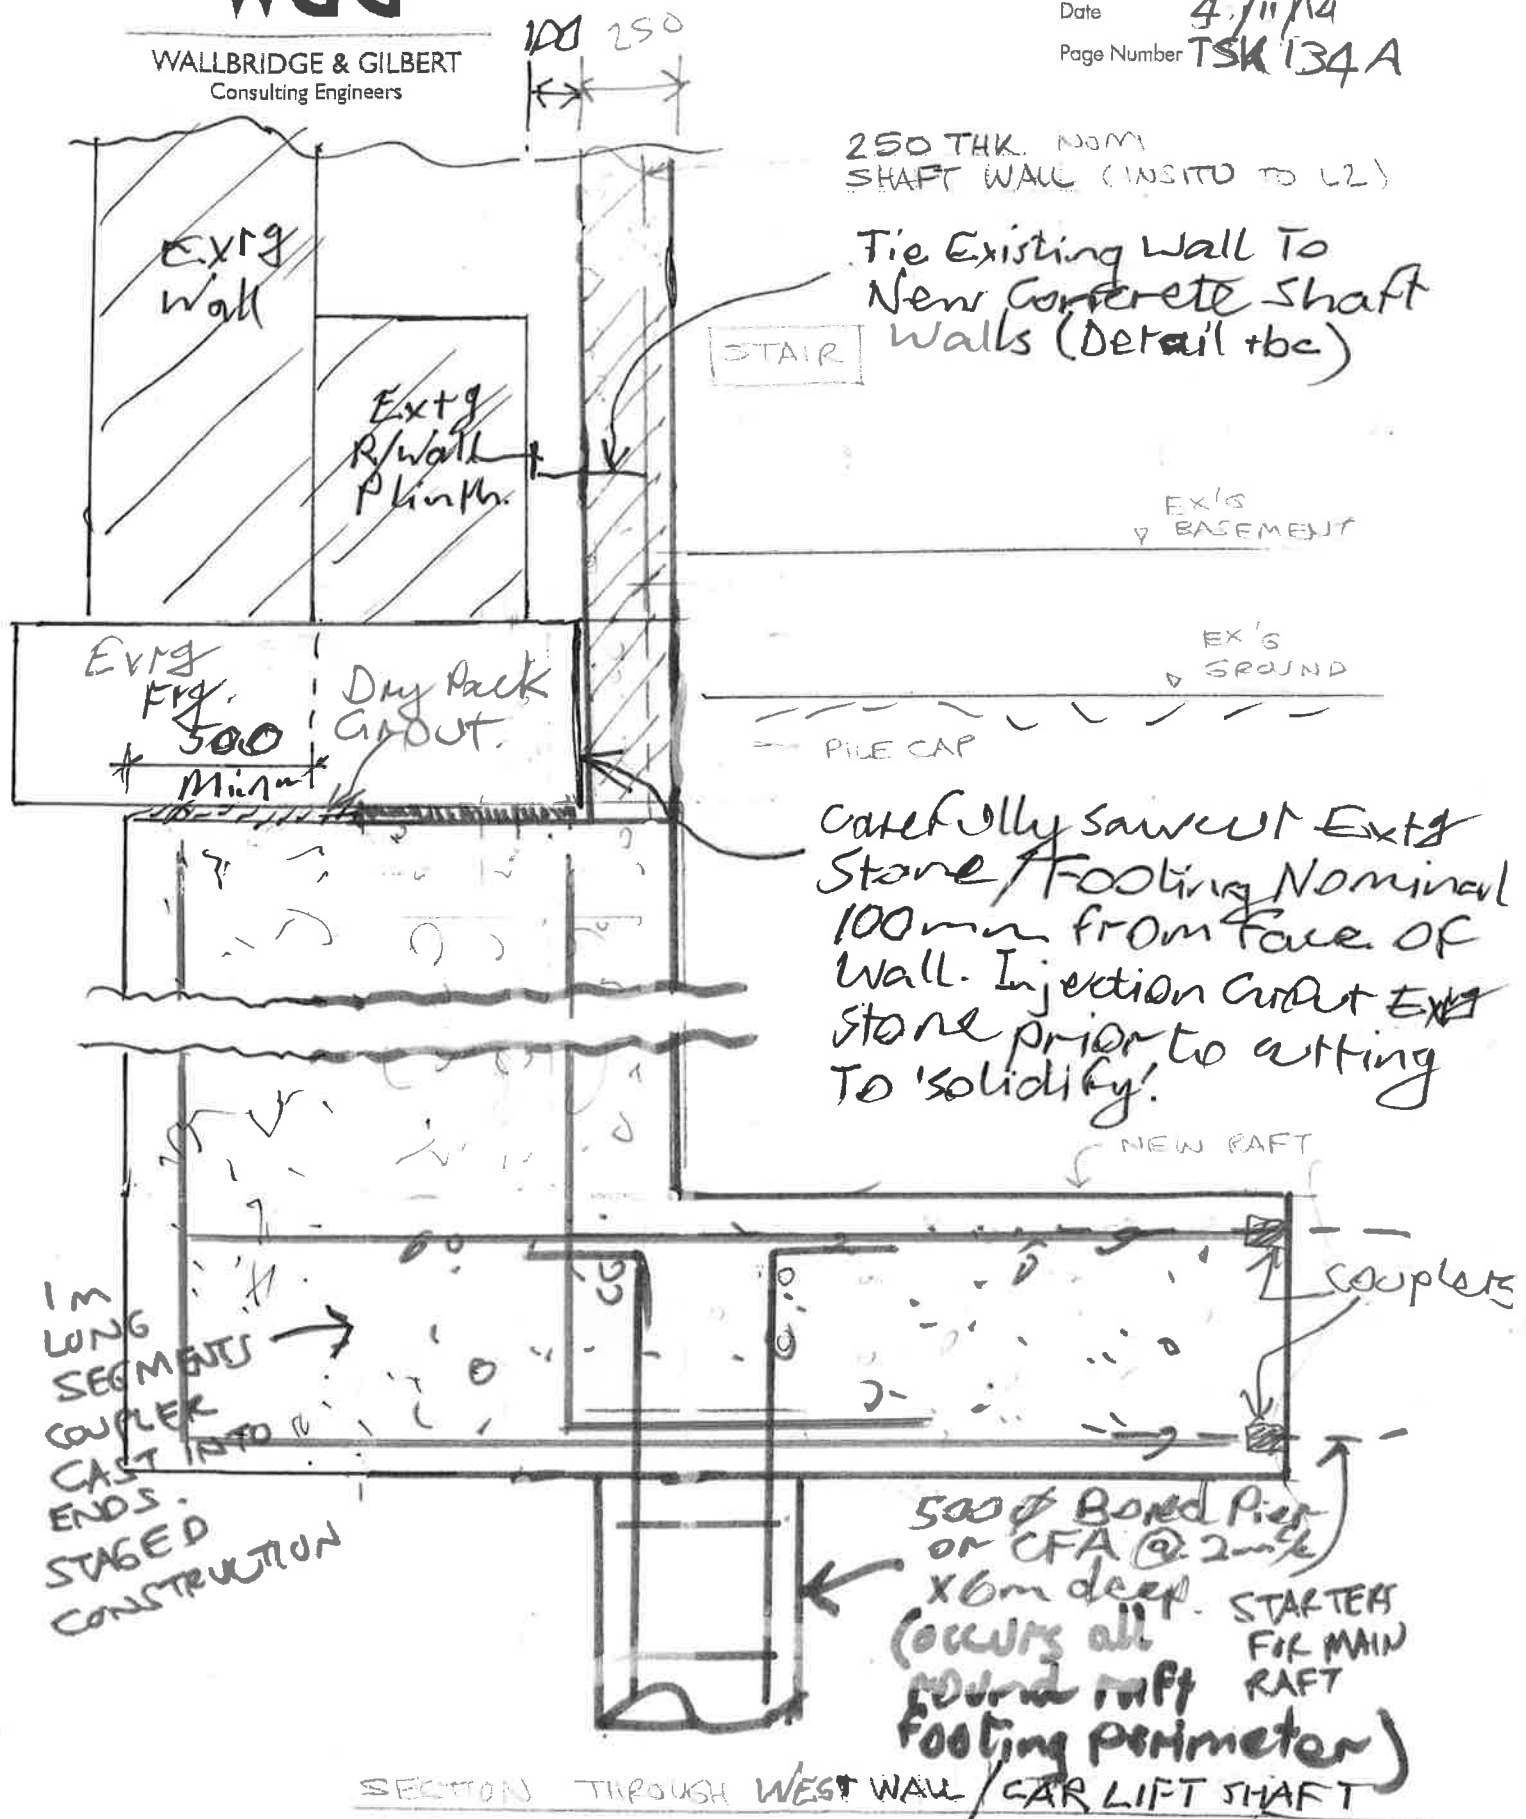 WALLBRIDGE & GILBERT
Consulting Engineers
Date 4/11/14
Page Number TSK 134 A
100 250
250 THK. NOM
SHAFT WALL (INSITU TO L2)
Tie Existing Wall To
New Concrete Shaft
Walls (Detail tbc)
STAIR
Extg
Wall
Extg
R/Wall
Plinth.
EX'G
BASEMENT
EX'G
GROUND
PILE CAP
Extg
Ftg.
500
Min
Dry Pack
Grout.
Carefully sawcut Extg
Stone/Footing Nominal
100mm from Face Of
Wall. Injection Grout Extg
Stone prior to cutting
To 'solidify'.
NEW RAFT
couplers
1m
LONG
SEGMENTS
COUPLER
CAST INTO
ENDS.
STAGED
CONSTRUCTION
500 Ø Bored Pier
or CFA @ 2m c/c
x 6m deep.
(occurs all
round raft
footing perimeter)
STARTERS
FOR MAIN
RAFT
SECTION THROUGH WEST WALL / CAR LIFT SHAFT